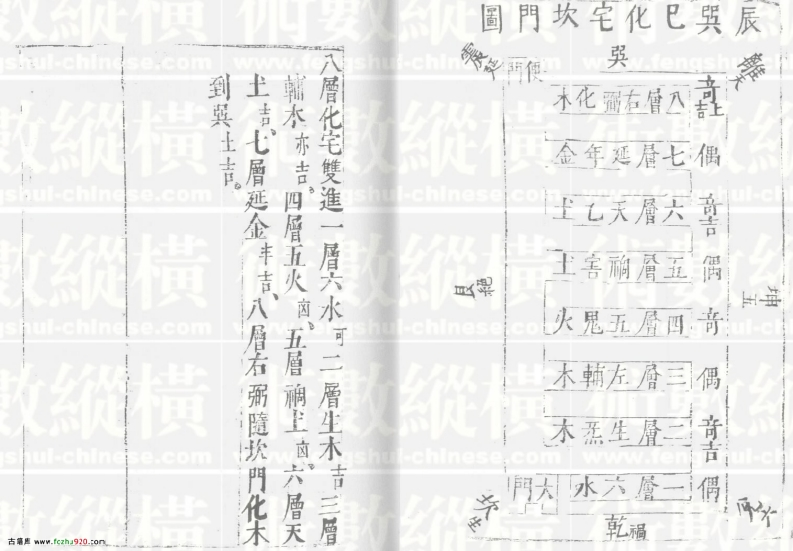 辰巽巳化宅坎門圖
巽
離天
震延
便門
奇吉土
八層右弼化木
偶
七層延年金
奇吉
六層天乙土
偶
五層禍害土
奇
四層五鬼火
偶
三層左輔木
奇吉
二層生炁木
偶
一層六水
大門
坤五
艮絕
坎生
乾禍
八層化宅雙進一層六水可二層生木吉三層
輔木亦吉。四層五火凶、五層禍土凶。六層天
土吉、七層延金半吉、八層右弼隨坎門化木
到巽土吉。
數縱橫
www.fengshui-chinese.com
古籍库 www.fozhu920.com